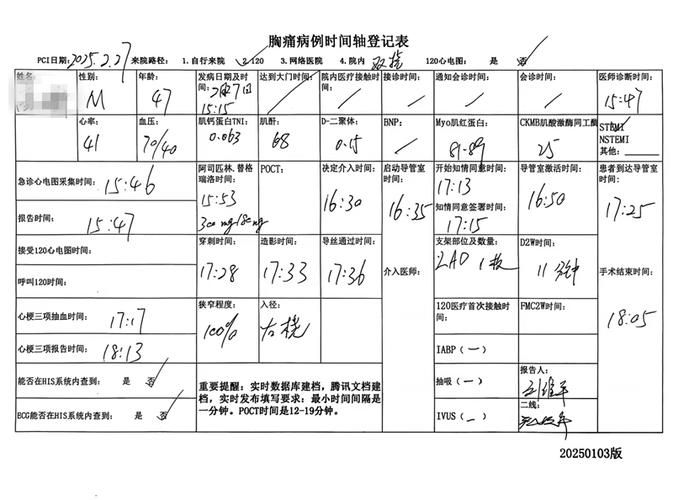 胸痛病例时间轴登记表
PCI日期: 2025.2.27 来院路径: 1.自行来院 2.120 3.网络医院 4.院内 120心电图: 是 否
姓名 性别: M 年龄: 47 发病日期及时间: 15:15 达到大门时间: 院内医疗接触时间: 接诊时间: 通知会诊时间: 会诊时间: 医师诊断时间: 15:47
心率: 41 血压: 70/40 肌钙蛋白TNI: 0.063 肌酐: 68 D-二聚体: 0.15 BNP: Myo肌红蛋白: 81.89 CKMB肌酸激酶同工酶 25 STEMI
NSTEMI
其他:
急诊心电图采集时间: 15:46 阿司匹林.替格瑞洛时间: 15:53 300mg 180mg POCT: 决定介入时间: 16:30 启动导管室时间: 16:35 开始知情同意时间: 17:13 导管室激活时间: 16:50 患者到达导管室时间: 17:25
报告时间: 15:47 知情同意签署时间: 17:15
接受120心电图时间: 穿刺时间: 17:28 造影时间: 17:33 导丝通过时间: 17:36 介入医师: 支架部位及数量: LAD 1枚 D2W时间: 11分钟 手术结束时间: 18:05
呼叫120时间:
心梗三项抽血时间: 17:17 狭窄程度: 100% 入径: 右桡 120医疗首次接触时间: FMC2W时间:
心梗三项报告时间: 18:13 IABP（—）
能否在HIS系统内查到: 是 否 重要提醒: 实时数据库建档,腾讯文档建档,实时发布填写要求: 最小时间间隔是一分钟。POCT时间是12-19分钟。 抽吸（—） 报告人:
ECG能否在HIS系统内查到: 是 否 IVUS（—） 二线:
20250103版